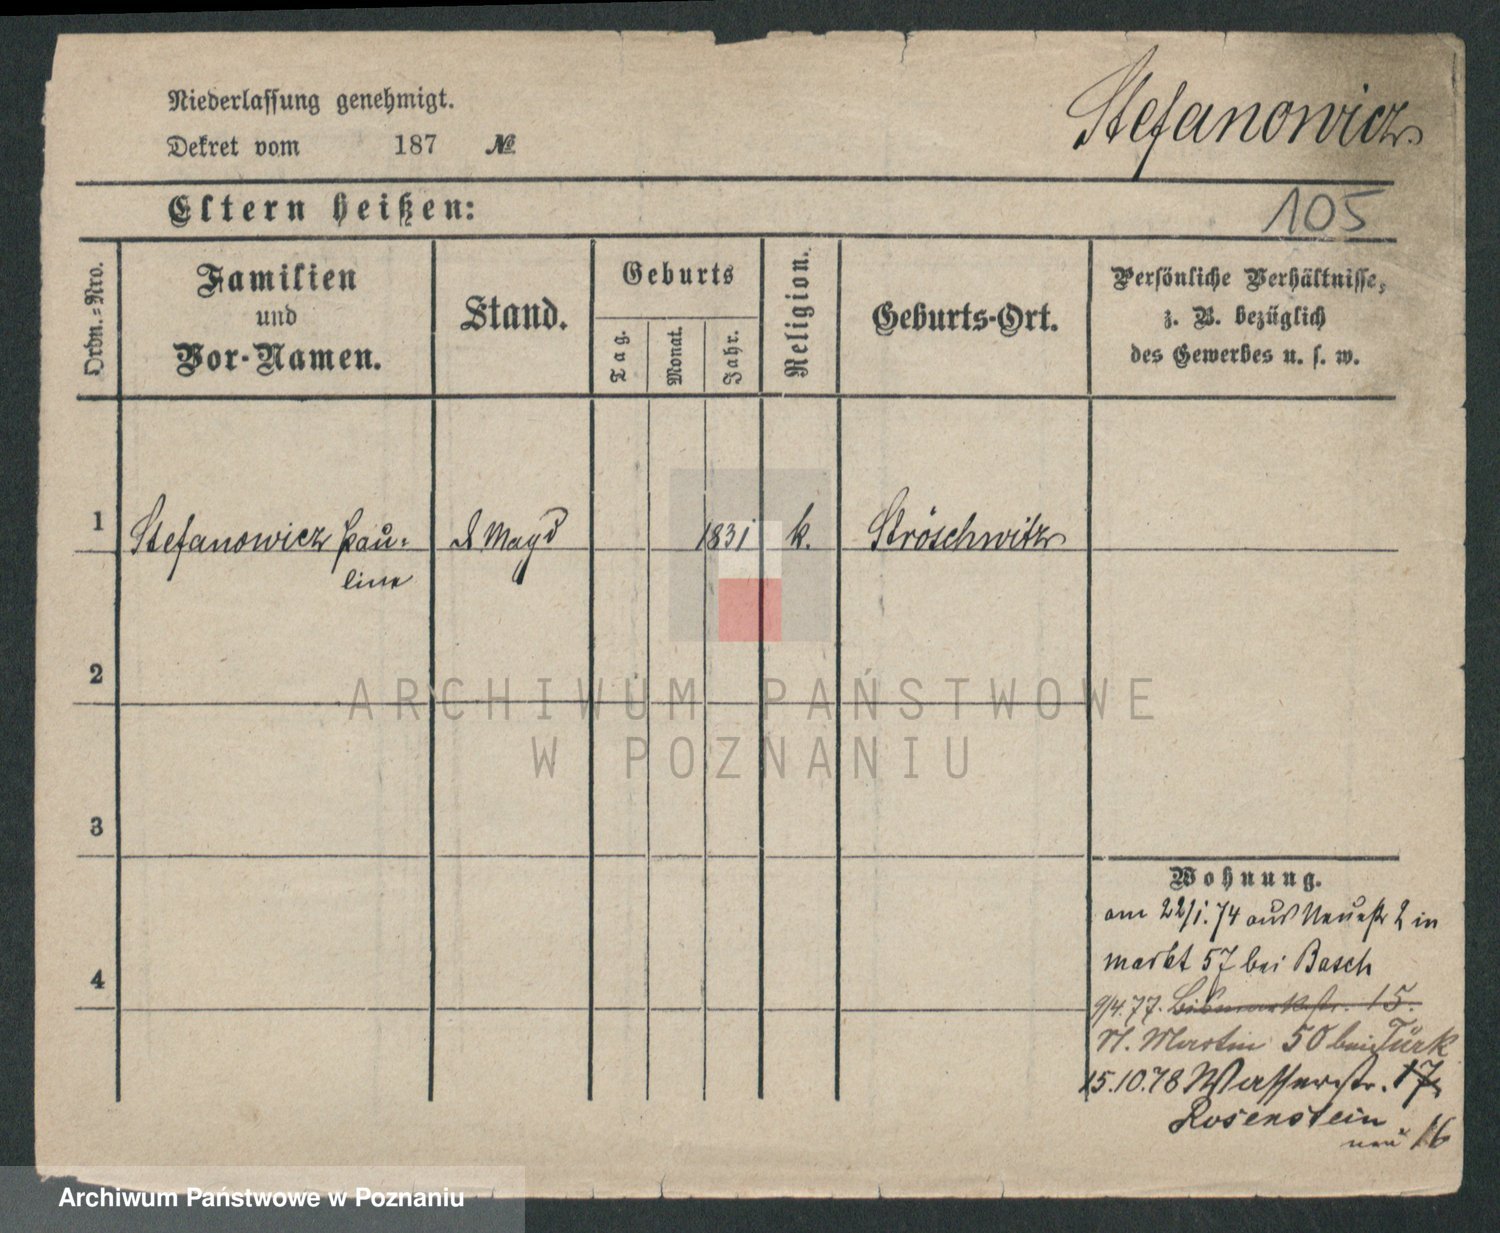 Niederlassung genehmigt.
Dekret vom 187 №
Stefanowicz
Eltern heißen:
105
Ordn.-Nro.
Familien
und
Vor-Namen.
Stand.
Geburts
Tag.
Monat.
Jahr.
Religion.
Geburts-Ort.
Persönliche Verhältnisse,
z. B. bezüglich
des Gewerbes u. s. w.
1 Stefanowicz Pau-
line
Magd 1831 k. Ströschwitz
2
3
4
Wohnung.
am 22/1.74 aus Neuestr 2 in
markt 57 bei Basch
9/4.77. Bismarkstr. 15.
St. Martin 50 bei Türk
15.10.78 Wasserstr. 17
Rosenstein
neu 16
ARCHIWUM PAŃSTWOWE
W POZNANIU
Archiwum Państwowe w Poznaniu